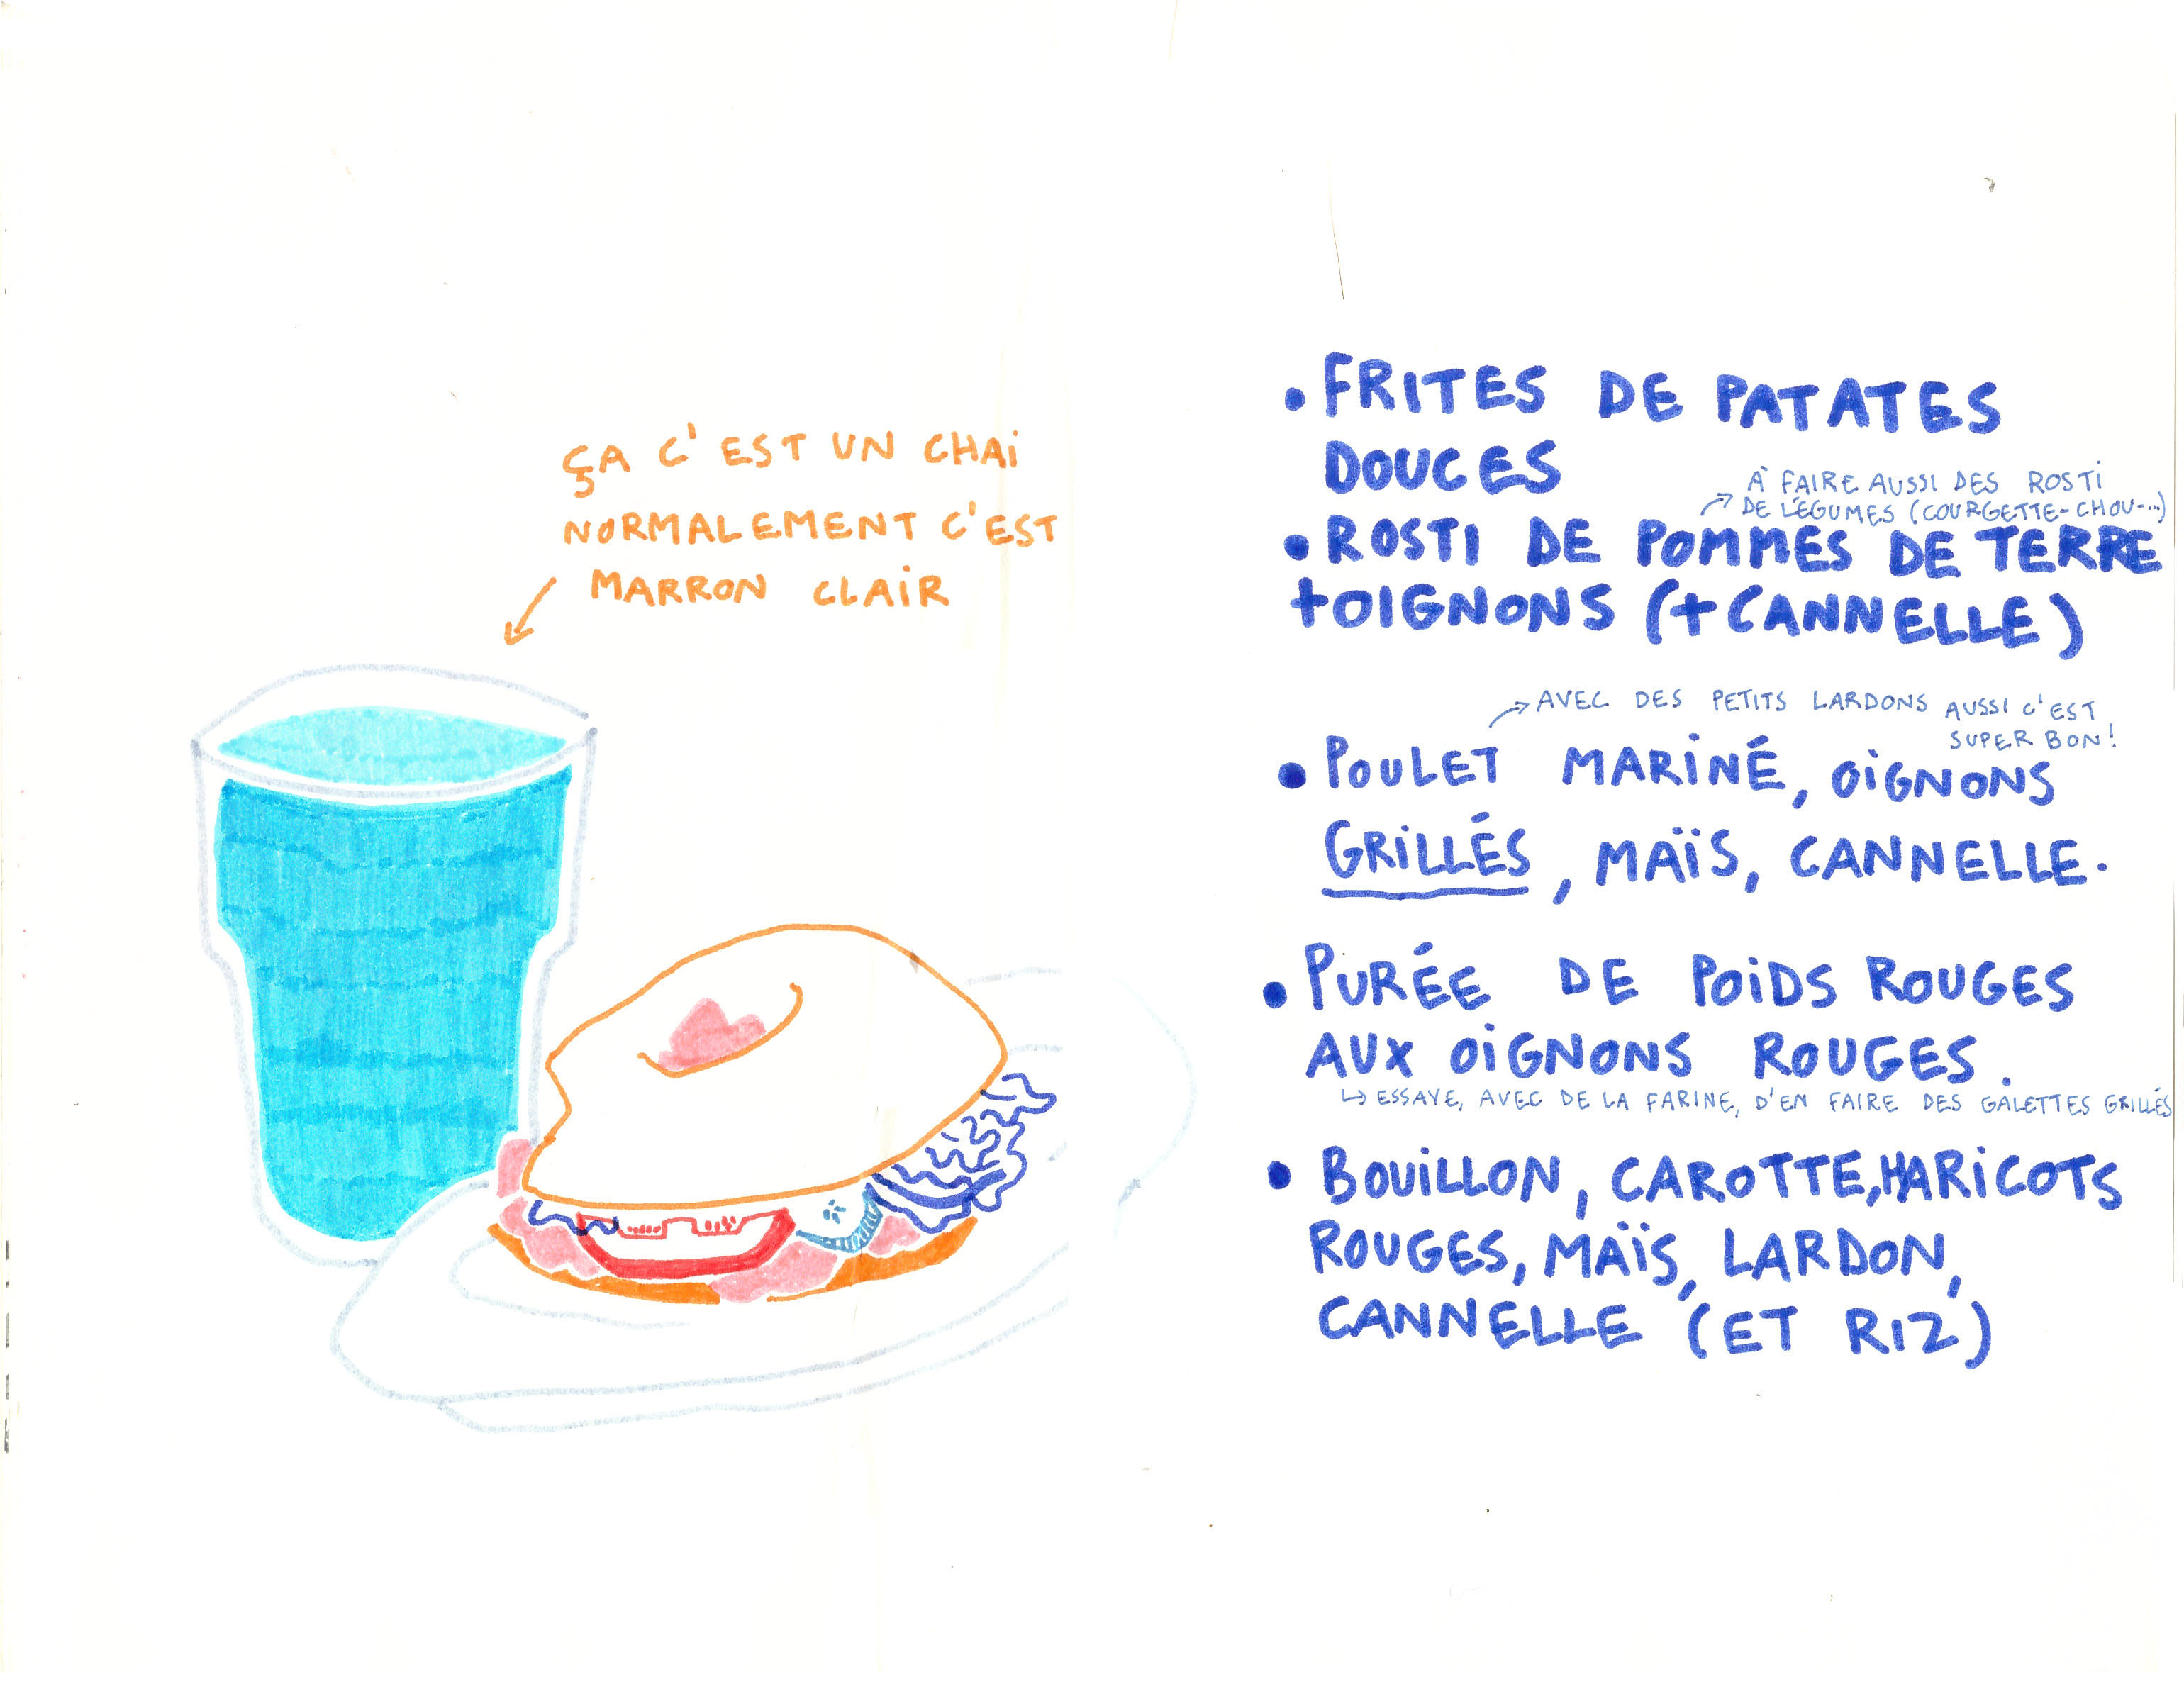 ÇA C'EST UN CHAi
NORMALEMENT C'EST
MARRON CLAIR
• FRITES DE PATATES
DOUCES
À FAIRE AUSSI DES ROSTI
DE LÉGUMES (COURGETTE-CHOU-...)
• ROSTI DE POMMES DE TERRE
+OIGNONS (+CANNELLE)
AVEC DES PETITS LARDONS AUSSI C'EST
SUPER BON!
• POULET MARINÉ, OIGNONS
GRILLÉS, MAÏS, CANNELLE.
• PURÉE DE POIDS ROUGES
AUX OIGNONS ROUGES.
↳ ESSAYE, AVEC DE LA FARINE, D'EN FAIRE DES GALETTES GRILLÉS
• BOUILLON, CAROTTE, HARICOTS
ROUGES, MAÏS, LARDON,
CANNELLE (ET RIZ)